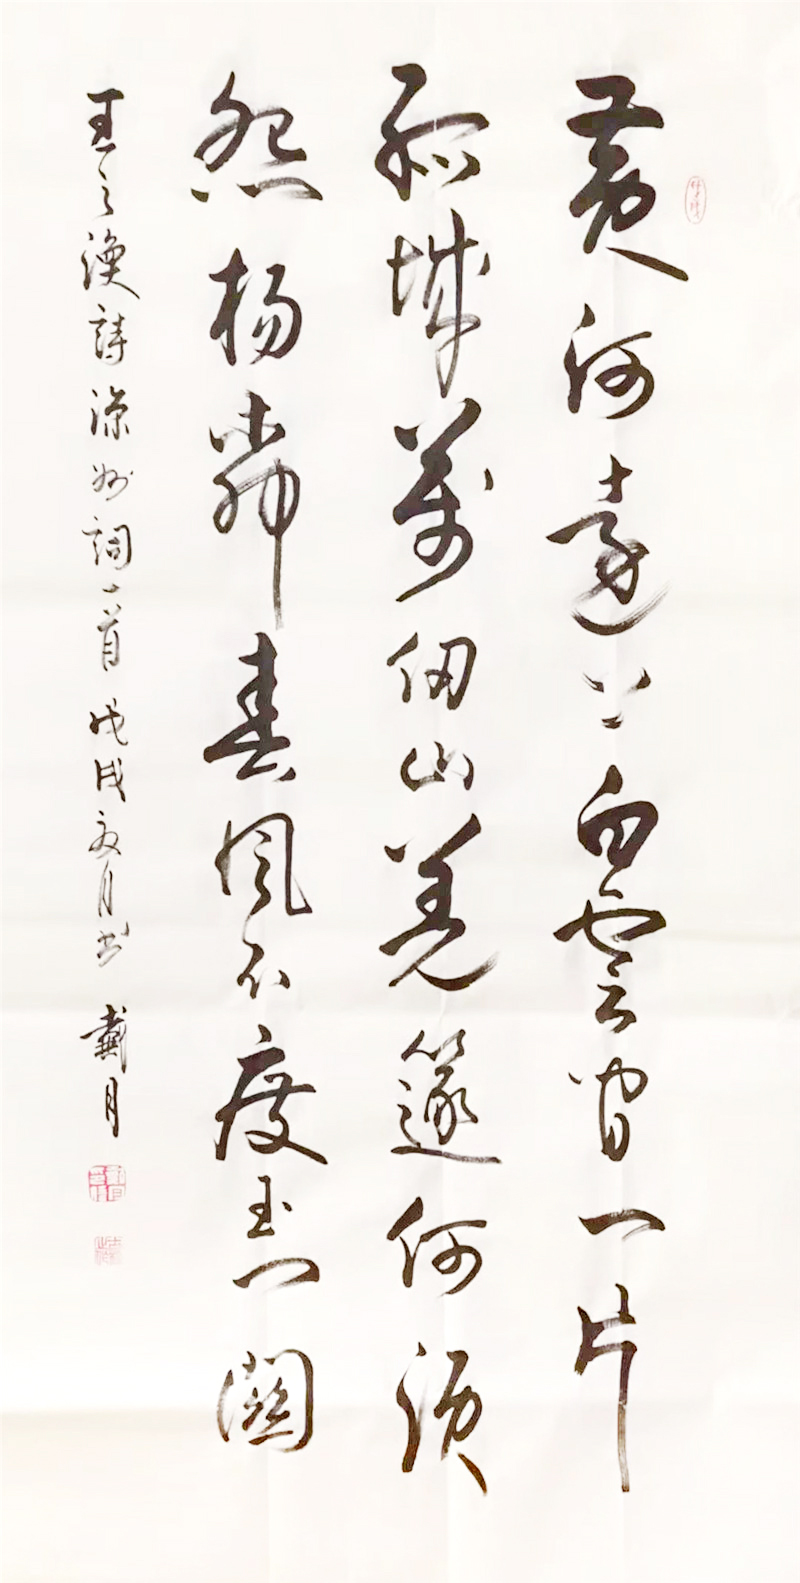 黄河遠上白雲間一片
孤城萬仞山羌篴何須
怨楊柳春風不度玉門關
王之渙詩涼州詞一首戊戌夏月書 戴月